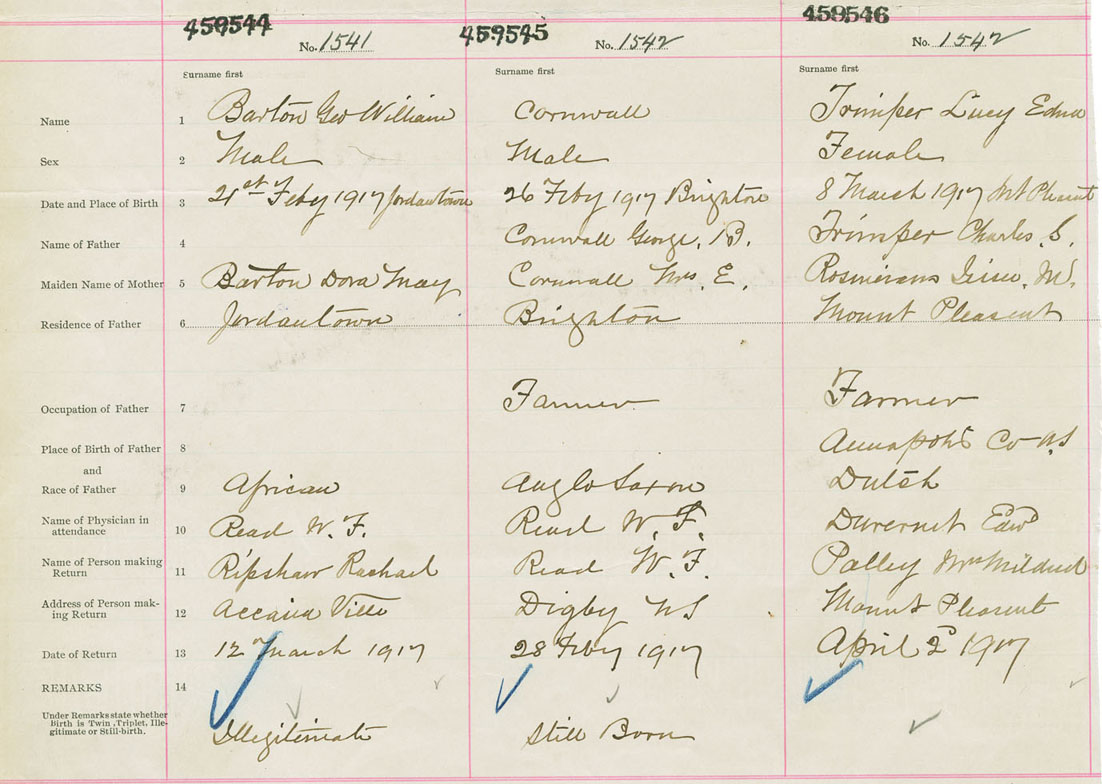 459544 459545 459546
No. 1541 No. 1542 No. 1542
Surname first Surname first Surname first
Name 1 Barton Geo William Cornwall Trimper Lucy Edna
Sex 2 Male Male Female
Date and Place of Birth 3 21st Feby 1917 Jordantown 26 Feby 1917 Brighton 8 March 1917 Mt Pleasant
Name of Father 4 Cornwall George. B. Trimper Charles. S.
Maiden Name of Mother 5 Barton Dora May Cornwall Mrs. E.
Residence of Father 6 Jordantown Brighton Mount Pleasent
Occupation of Father 7 Farmer Farmer
Place of Birth of Father 8 Annapolis Co N.S
and
Race of Father 9 African Anglo Saxon Dutch
Name of Physician in
attendance 10 Read W. F. Read W. F. Duvernet Edw
Name of Person making
Return 11 Ripshaw Rachael Read W. F. Palley Mrs Mildred
Address of Person mak-
ing Return 12 Digby NS Mount Pleasent
Date of Return 13 12 March 1917 28 Feby 1917 April 2d 1917
REMARKS 14
Under Remarks state whether
Birth is Twin, Triplet, Ille-
gitimate or Still-birth. Illegitimate Still Born